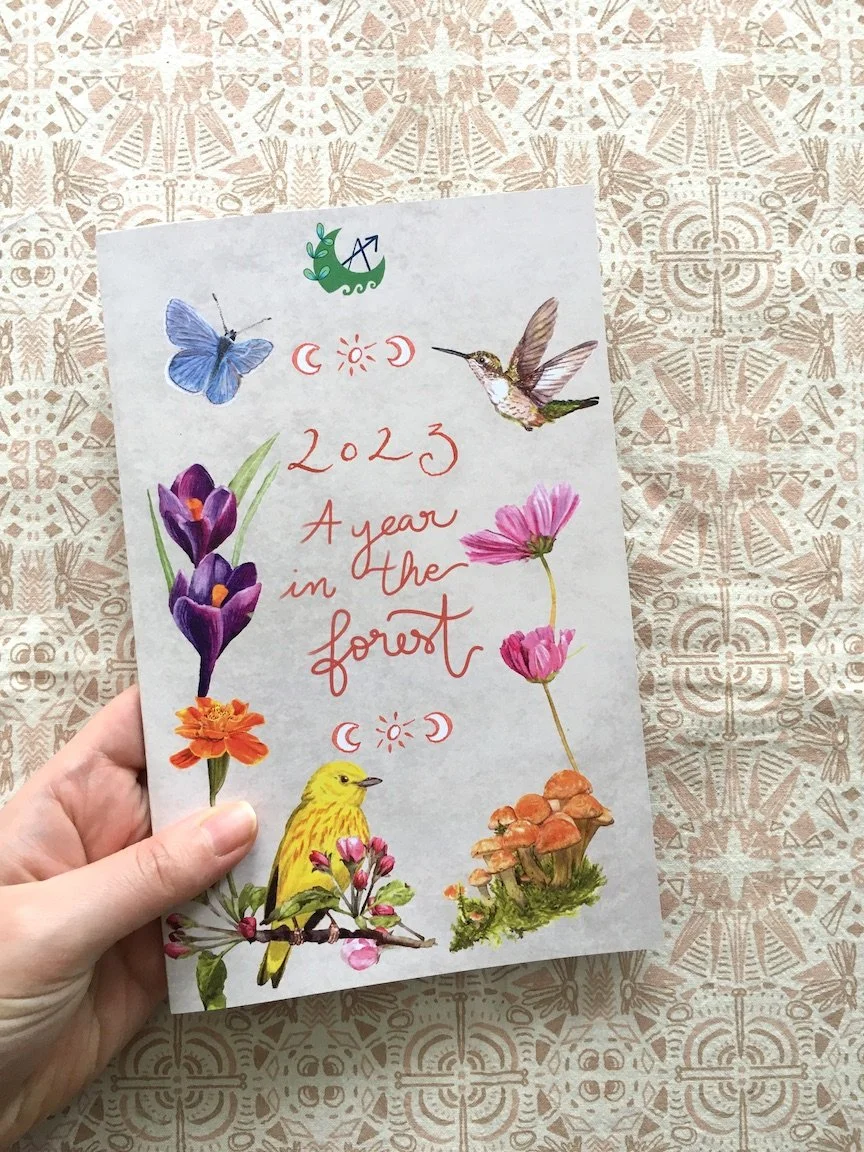 2023
A year
in the
forest